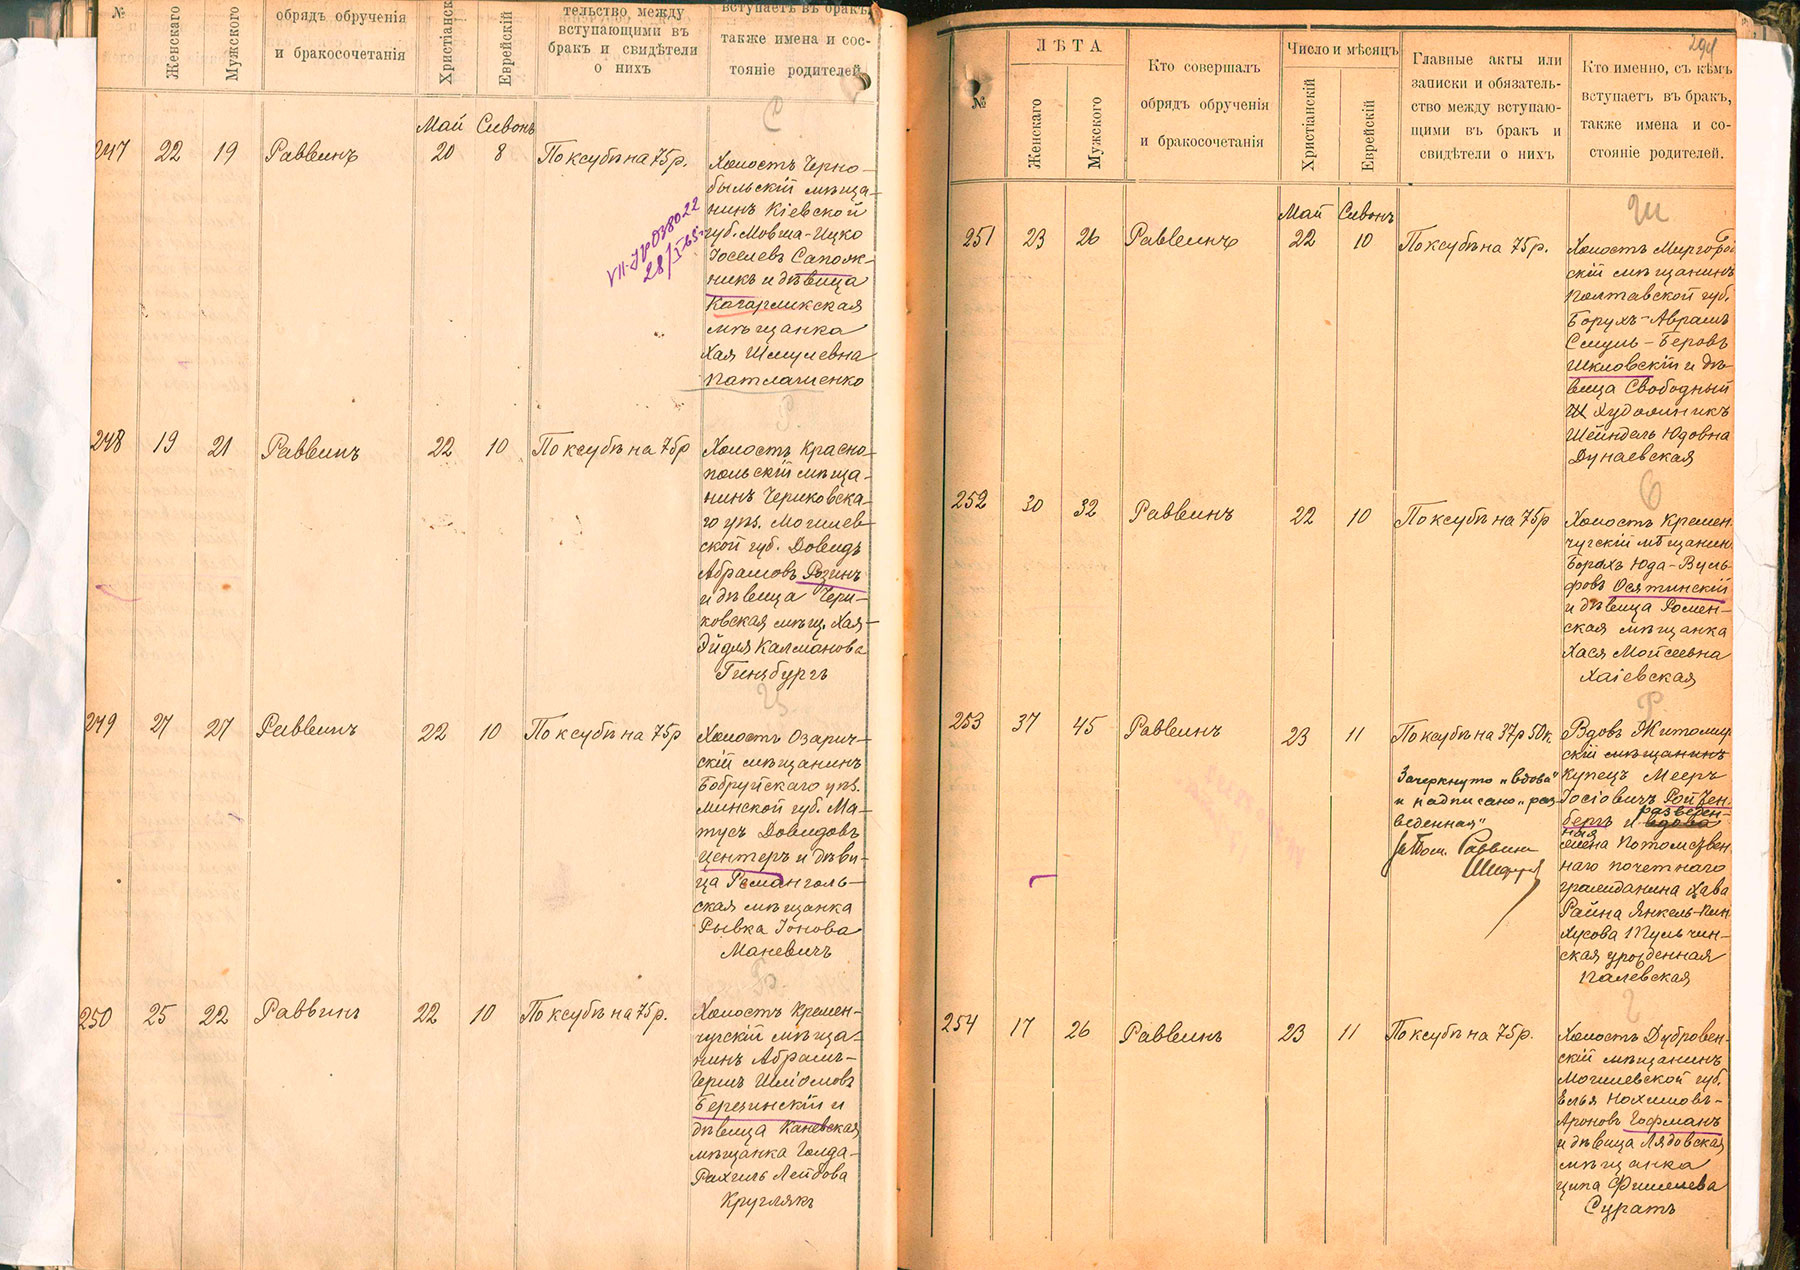 №
Женскаго
Мужского
обрядъ обрученія
и бракосочетанія
Христіанск
Еврейскій
тельство между
вступающими въ
бракъ и свидѣтели
о нихъ
вступаетъ въ бракъ,
также имена и сос-
тояніе родителей
С
Май Сивонъ
247 22 19 Раввинъ 20 8 По ксубѣ на 75 р.
Холостъ Черно-
быльскій мѣща-
нинъ Кіевской
губ. Мовша-Ицко
Іоселевъ Сапож-
никъ и дѣвица
Кагарликская
мѣщанка
Хая Шмулевна
Патлашенко
28/I 65
Р.
248 19 21 Раввинъ 22 10 По ксубѣ на 75 р
Холостъ Красно-
польскій мѣща-
нинъ Чериковска-
го уѣз. Могилев-
ской губ. Довидъ
Абрамовъ Розинъ
и дѣвица Чери-
ковская мѣщ. Хая-
Эйдля Калманова
Гинзбургъ
Ц
249 27 27 Раввинъ 22 10 По ксубѣ на 75 р
Холостъ Озарич-
скій мѣщанинъ
Бобруйскаго уѣз.
Минской губ. Ма-
тусъ Довидовъ
Центеръ и дѣви-
ца Романголь-
ская мѣщанка
Рывка Іонова
Маневичъ
Б.
250 25 22 Раввинъ 22 10 По ксубѣ на 75 р.
Холостъ Кремен-
чугскій мѣща-
нинъ Абрамъ-
Герш Шліомовъ
Березинскій и
дѣвица Каневская
мѣщанка Голда-
Рахиль Лейбова
Круглякъ
294
№
ЛѢТА
Женскаго
Мужского
Кто совершалъ
обрядъ обрученія
и бракосочетанія
Число и мѣсяцъ
Христіанскій
Еврейскій
Главные акты или
записки и обязатель-
ство между вступаю-
щими въ бракъ и
свидѣтели о нихъ
Кто именно, съ кѣмъ
вступаетъ въ бракъ,
также имена и со-
стояніе родителей.
Ш
Май Сивонъ
251 23 26 Раввинъ 22 10 По ксубѣ на 75 р.
Холостъ Миргород
скій мѣщанинъ
Полтавской губ.
Борухъ-Аврамъ
Смуль-Беровъ
Шкловскій и дѣ-
вица Свободный
Художникъ
Шейндель Юдовна
Дунаевская
О
252 30 32 Раввинъ 22 10 По ксубѣ на 75 р
Холостъ Кремен
чугскій мѣщанин
Борахъ Юда-Вуль-
фовъ Осятинскій
и дѣвица Ромен-
ская мѣщанка
Хася Мойсеевна
Хаіевская
Р
253 37 45 Раввинъ 23 11 По ксубѣ на 37 р 50 к
Зачеркнуто „вдова"
и надписано „раз
веденная"
Раввинъ
Вдовъ Житомир
скій мѣщанинъ
купецъ Мееръ
Іосіовичъ Ройтен
разведен-
бергъ и вдова
ная
жена Потомствен
наго почетнаго
гражданина Хава
Райна Янкель-Пин
хусова Тульчин-
ская урожденная
Палевская
Г
254 17 26 Раввинъ 23 11 По ксубѣ на 75 р.
Холостъ Дубровен-
скій мѣщанинъ
Могилевской губ.
Елья Нохимовъ-
Ароновъ Гофманъ
и дѣвица Лядовская
мѣщанка
Ципа Фишелева
Суратъ